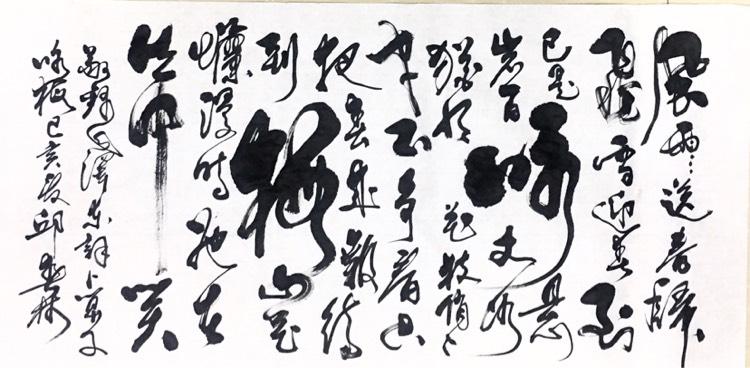 風雨送春歸
飛雪迎春到
已是懸
咏
岩百丈冰
猶有花枝俏〻
也不争春只
把春来報待
到山花
梅
爛漫時她在
丛中笑
敬録毛澤东詞卜算子
咏梅己亥夏邱春林